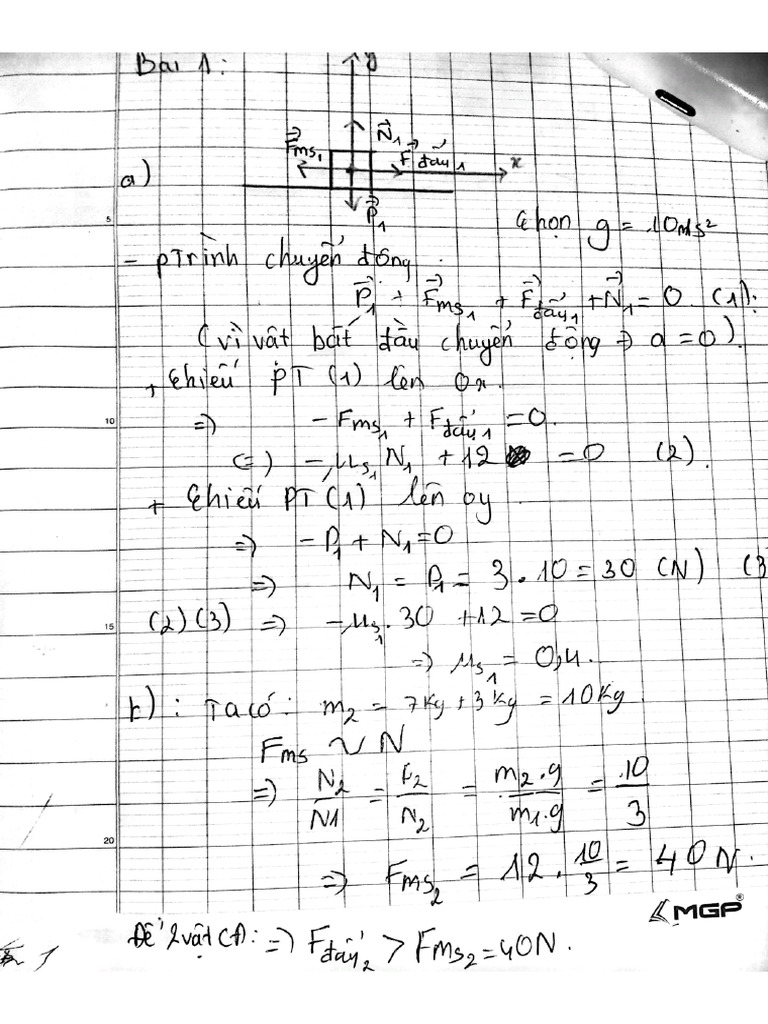 Bài 1:
y
N⃗₁
F⃗ms₁
F⃗đẩy₁
x
a)
P⃗₁
Chọn g = 10m/s²
- PTrình chuyển động:
P⃗₁ + F⃗ms₁ + F⃗đẩy₁ + N⃗₁ = 0. (1):
(vì vật bắt đầu chuyển động → a = 0).
+ Chiếu PT (1) lên Ox.
=> - Fms₁ + Fđẩy₁ = 0.
<=> - μs₁ N₁ + 12 = 0 (2).
+ Chiếu PT (1) lên oy
=> - P₁ + N₁ = 0
=> N₁ = P₁ = 3 . 10 = 30 (N) (3
(2)(3) => - μs₁. 30 + 12 = 0
=> μs₁ = 0,4.
b): Ta có: m₂ = 7kg + 3kg = 10kg
Fms ~ N
=> N₂/N1 = F₂/N₂ = m₂.g/m₁.g = 10/3
=> Fms₂ = 12 . 10/3 = 40N.
MGP
Để 2 vật CĐ: => Fđẩy₂ > Fms₂ = 40N.